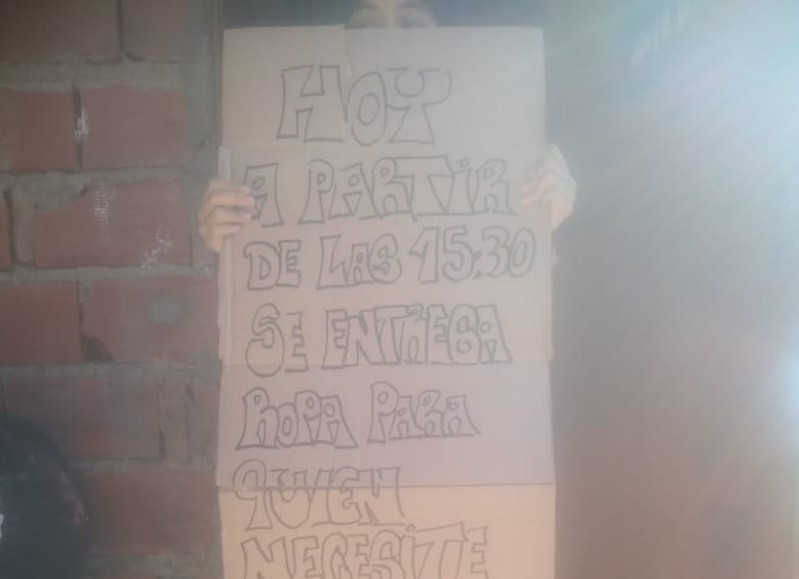 HOY
A PARTIR
DE LAS 15:30
SE ENTREGA
ROPA PARA
QUIEN
NECESITE